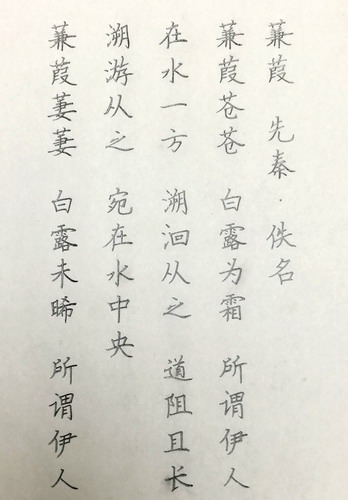 蒹葭 先秦·佚名
蒹葭苍苍 白露为霜 所谓伊人
在水一方 溯洄从之 道阻且长
溯游从之 宛在水中央
蒹葭萋萋 白露未晞 所谓伊人